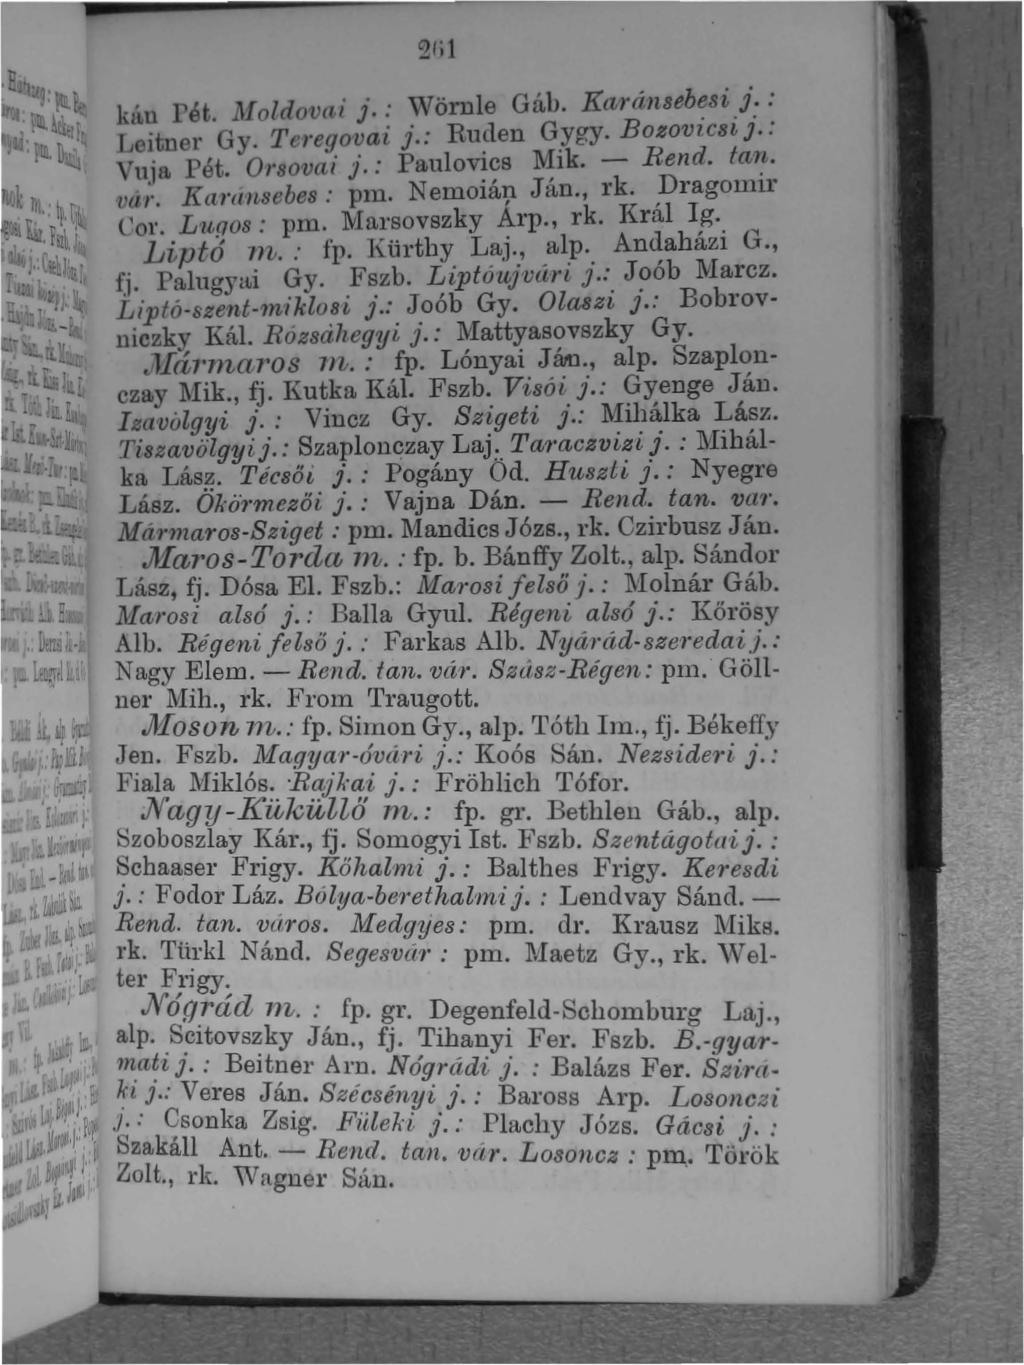 261
kán Pét. Moldovai j. : Wörnle Gáb. Karánsebesi j. :
Leitner Gy. Teregovai j.: Ruden Gygy. Bozovicsi j.:
Vuja Pét. Orsovai j. : Paulovics Mik. — Rend. tan.
vár. Karánsebes : pm. Nemoián Ján., rk. Dragomir
Cor. Lugos : pm. Marsovszky Árp., rk. Král Ig.
Liptó m. : fp. Kürthy Laj., alp. Andaházi G.,
fj. Palugyai Gy. Fszb. Liptóujvári j.: Joób Marcz.
Liptó-szent-miklosi j.: Joób Gy. Olaszi j.: Bobrov-
niczky Kál. Rózsahegyi j. : Mattyasovszky Gy.
Mármaros m. : fp. Lónyai Ján., alp. Szaplon-
czay Mik., fj. Kutka Kál. Fszb. Visói j.: Gyenge Ján.
Izavölgyi j. : Vincz Gy. Szigeti j.: Mihálka Lász.
Tiszavölgyi j. : Szaplonczay Laj. Taraczvizi j. : Mihál-
ka Lász. Técsői j. : Pogány Öd. Huszti j. : Nyegre
Lász. Ökörmezői j. : Vajna Dán. — Rend. tan. var.
Mármaros-Sziget : pm. Mandics Józs., rk. Czirbusz Ján.
Maros-Torda m. : fp. b. Bánffy Zolt., alp. Sándor
Lász, fj. Dósa El. Fszb.: Marosi felső j. : Molnár Gáb.
Marosi alsó j. : Balla Gyul. Régeni alsó j.: Kőrösy
Alb. Régeni felső j. : Farkas Alb. Nyárád-szeredai j. :
Nagy Elem. — Rend. tan. vár. Szász-Régen: pm. Göll-
ner Mih., rk. From Traugott.
Moson m. : fp. Simon Gy., alp. Tóth Im., fj. Békeffy
Jen. Fszb. Magyar-óvári j.: Koós Sán. Nezsideri j. :
Fiala Miklós. Rajkai j. : Fröhlich Tófor.
Nagy-Küküllő m. : fp. gr. Bethlen Gáb., alp.
Szoboszlay Kár., fj. Somogyi Ist. Fszb. Szentágotai j. :
Schaaser Frigy. Kőhalmi j. : Balthes Frigy. Keresdi
j. : Fodor Láz. Bólya-berethalmi j. : Lendvay Sánd. —
Rend. tan. város. Medgyes: pm. dr. Krausz Miks.
rk. Türkl Nánd. Segesvár : pm. Maetz Gy., rk. Wel-
ter Frigy.
Nógrád m. : fp. gr. Degenfeld-Schomburg Laj.,
alp. Scitovszky Ján., fj. Tihanyi Fer. Fszb. B.-gyar-
mati j. : Beitner Arn. Nógrádi j. : Balázs Fer. Szirá-
ki j.: Veres Ján. Szécsényi j. : Baross Arp. Losonczi
j. : Csonka Zsig. Füleki j. : Plachy Józs. Gácsi j. :
Szakáll Ant. — Rend. tan. vár. Losoncz : pm. Török
Zolt., rk. Wagner Sán.